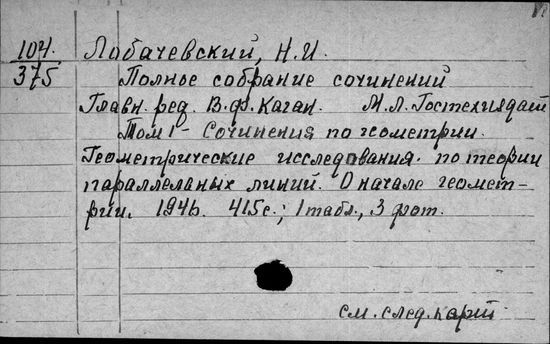 104. Лобачевский, Н.И.
375 Полное собрание сочинений
Главн. ред. В.Ф. Каган. М.Л. Гостехиздат
Том I - Сочинения по геометрии.
Геометрические исследования по теории
параллельных линий. О начале геомет-
рии. 1946. 415 с.; 1 табл., 3 фот.
см. след. карт.